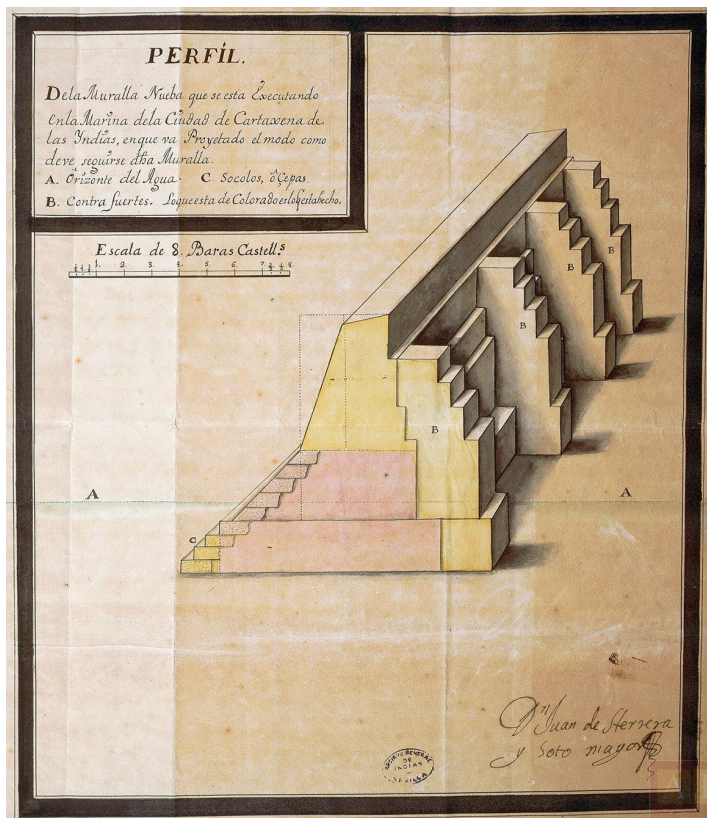 PERFÍL.
Dela Muralla Nueba que se esta Executando
en la Marina dela Ciudad de Cartaxena de
las Yndias, en que va Proyetado el modo como
deve seguirse dha Muralla.
A. Orizonte del Agua. C. Socolos, ô Çepas
B. Contra fuertes. Loque esta de Colorado es lo q̃ esta hecho.
Escala de 8. Baras Castell.s
1. 2. 3. 4. 5. 6. 7. 8.
B
B
B
B
A
A
C
Dn Juan de Herrera
y Soto mayor
ARCHIVO GENERAL
DE
INDIAS
SEVILLA